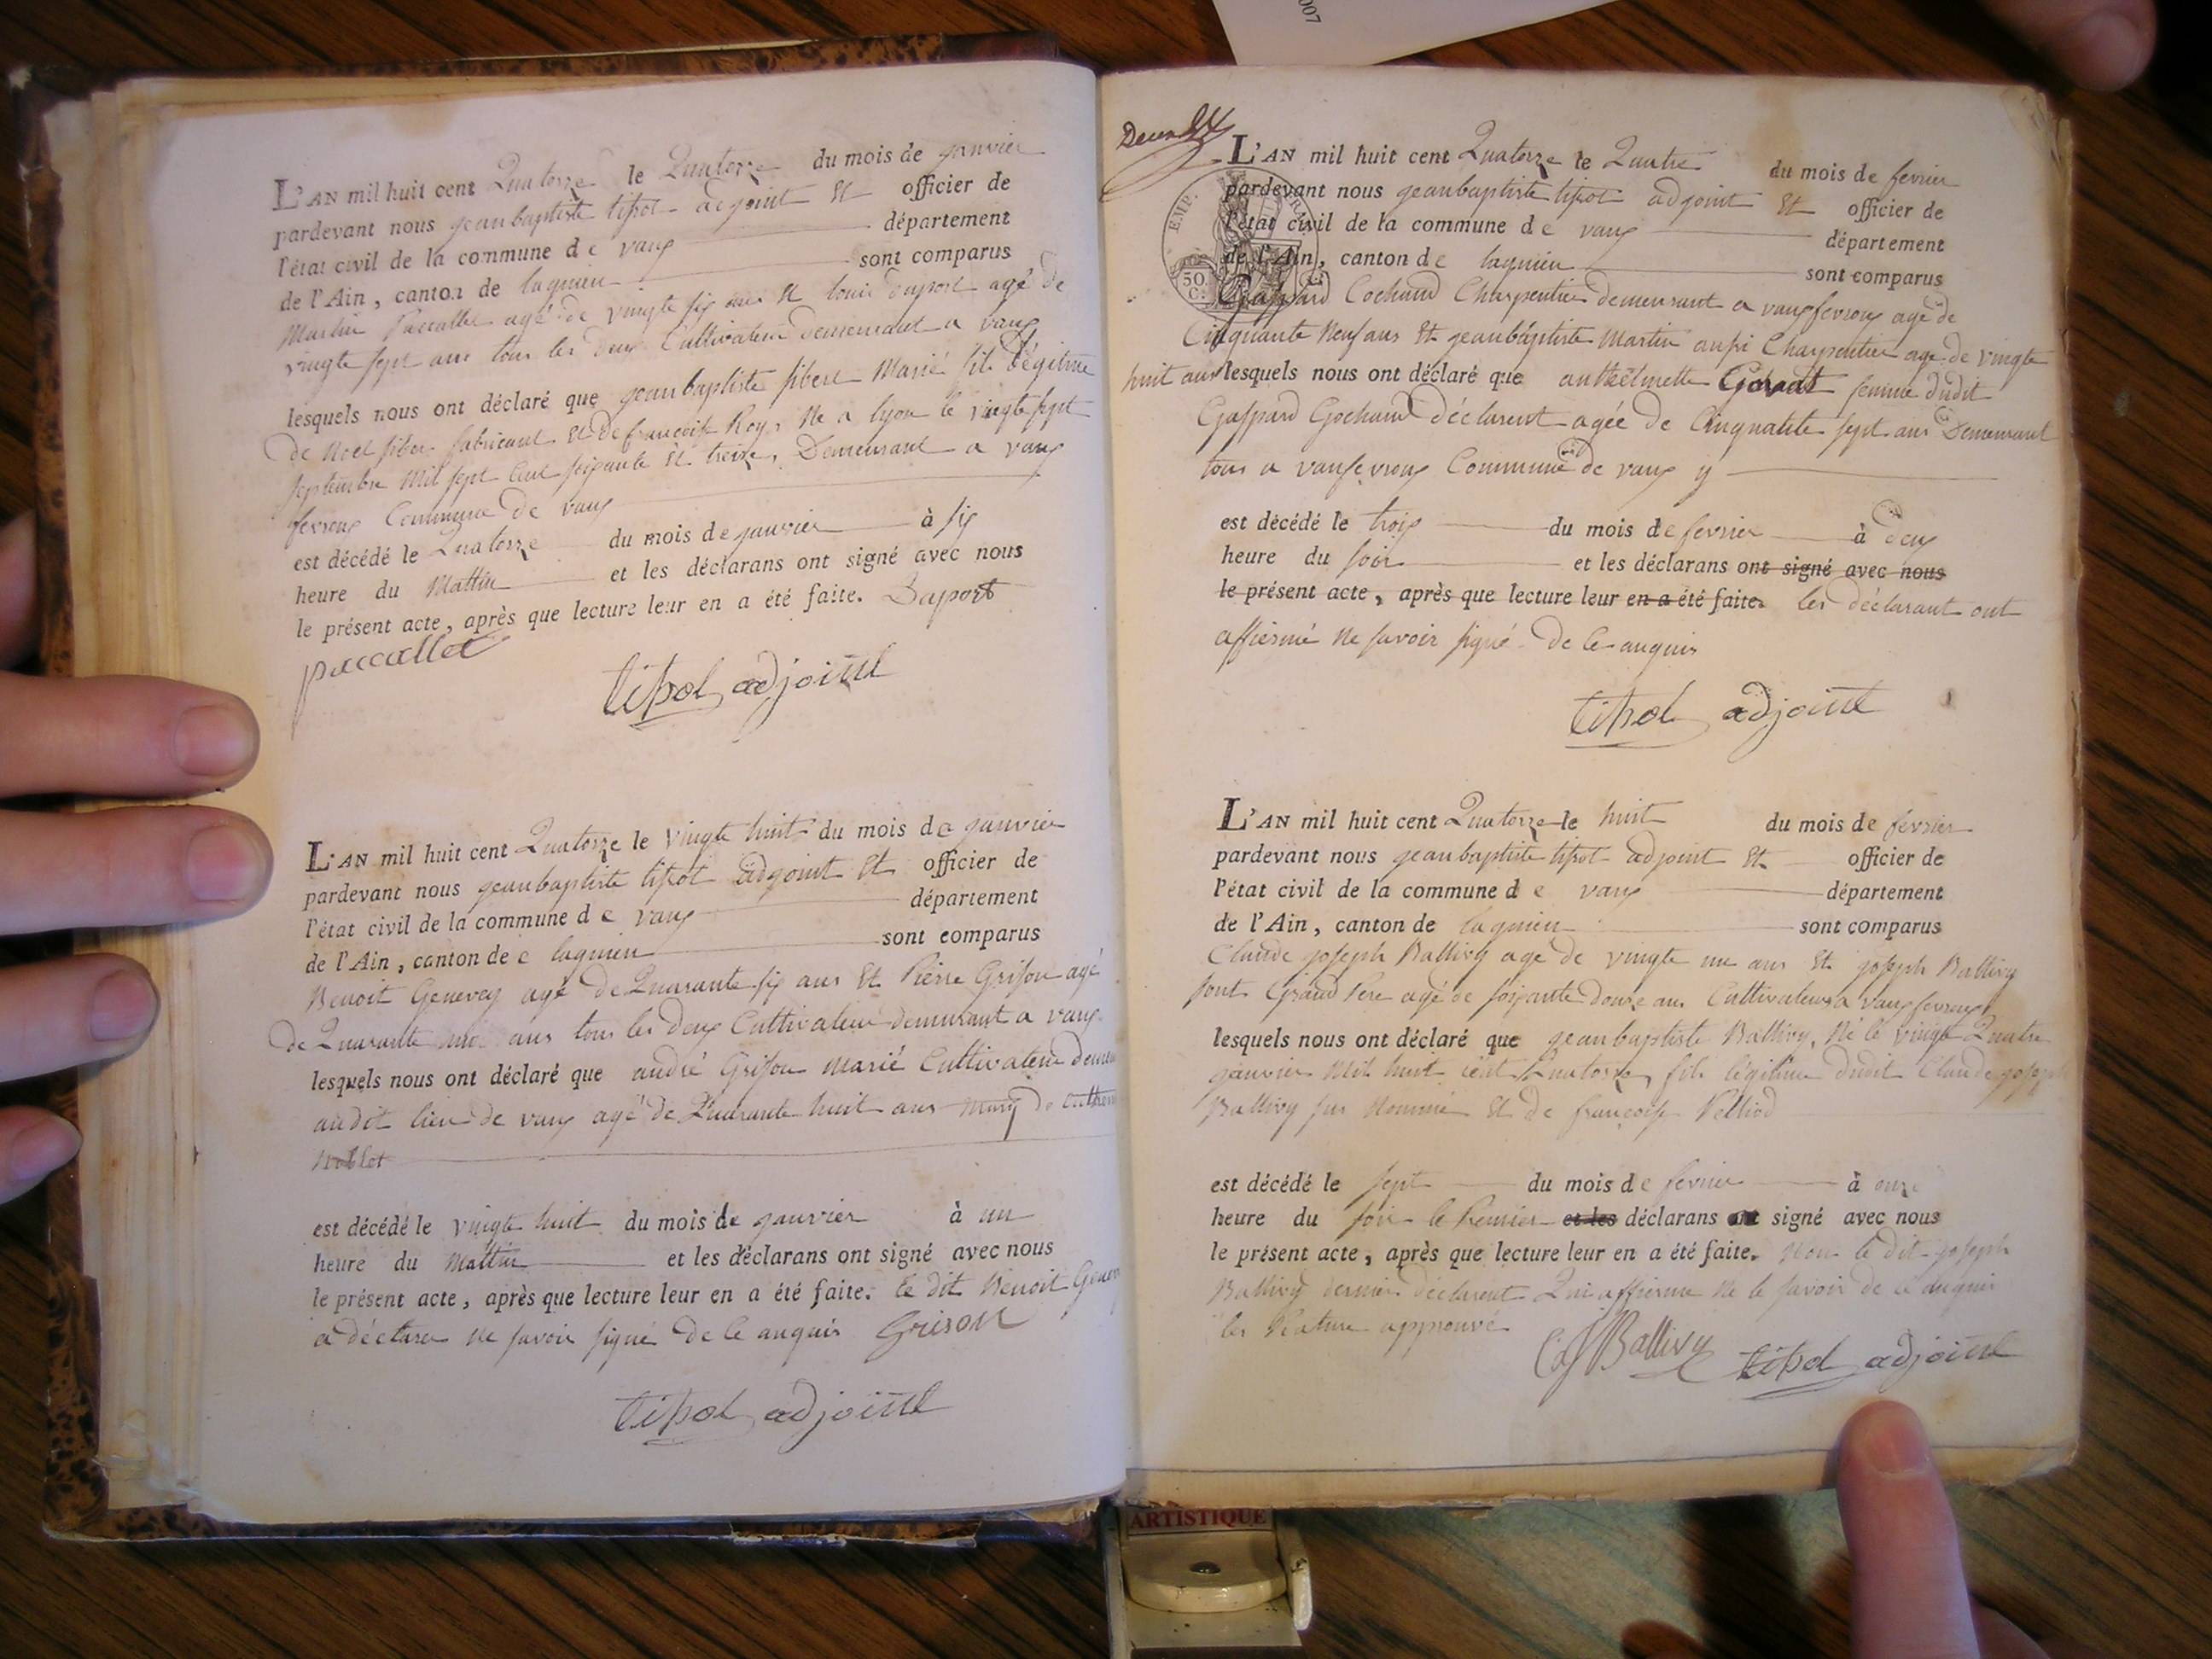 L'AN mil huit cent Quatorze le Quatorze du mois de janvier
pardevant nous jeanbaptiste tipot adjoint Et officier de
l'état civil de la commune de vaux département
de l'Ain, canton de lagnieu sont comparus
Martin Paccallet agé de vingte six ans Et louis duport agé de
vingte sept ans tous les deux Cultivateur demeurant a vaux
lesquels nous ont déclaré que jeanbaptiste fibert Marié fils légitime
de Noel fiber fabricant Et de francoise Roy, Né a lyon le vingte sept
septembre Mil sept Cent soixante Et treize, Demeurant a vaux
fevroux Commune de vaux
est décédé le Quatorze du mois de janvier à six
heure du Mattin et les déclarans ont signé avec nous
le présent acte, après que lecture leur en a été faite. Duport
paccallet
tipot adjoint
L'AN mil huit cent Quatorze le vingte huit du mois de janvier
pardevant nous jeanbaptiste tipot adjoint Et officier de
l'état civil de la commune de vaux département
de l'Ain, canton de lagnieu sont comparus
Benoit Genevey agé de Quarante six ans Et Pierre Grison agé
de Quarante ans tous les deux Cultivateur demurant a vaux
lesquels nous ont déclaré que andré Grison Marié Cultivateur demeu
audit lieu de vaux agé de Quarante huit ans
est décédé le vingte huit du mois de janvier à un
heure du Mattin et les déclarans ont signé avec nous
le présent acte, après que lecture leur en a été faite. Le dit Benoit Genev
a déclarer ne savoir signé de Ce anquis Grison
tipot adjoint
L'AN mil huit cent Quatorze le Quatre du mois de fevrier
pardevant nous jeanbaptiste tipot adjoint Et officier de
l'état civil de la commune de vaux département
de l'Ain, canton de lagnieu sont comparus
EMP. FRA
50 C.
Gaspard Cochaud Charpentier demeurant a vauxfevroux agé de
Cinquante Neuf ans Et jeanbaptiste Martin aussi Charpentier agé de vingte
huit ans lesquels nous ont déclaré que anthelmette femme dudit
Gaspard Gochaud déclarent agée de Cinquante sept ans Demeurant
tous a vaufevroux Commune de vaux
est décédé le trois du mois de fevrier à deux
heure du soir et les déclarans ont signé avec nous
le présent acte, après que lecture leur en a été faite. les déclarant ont
affiermé Ne savoir signé de Ce anquis
tipot adjoint
L'AN mil huit cent Quatorze le huit du mois de fevrier
pardevant nous jeanbaptiste tipot adjoint Et officier de
l'état civil de la commune de vaux département
de l'Ain, canton de lagnieu sont comparus
Claude joseph Ballivy agé de vingte un ans Et joseph Ballivy
sont Grand Pere agé de soixante douze ans Cultivateurs a vauxfevroux
lesquels nous ont déclaré que jeanbaptiste Ballivy, Né le vingte Quatre
janvier Mil huit cent Quatorze, fils légitime dudit Claude joseph
Ballivy sus Nommé Et de francoise
est décédé le sept du mois de fevrier à onze
heure du soir le Premier et les déclarans ont signé avec nous
le présent acte, après que lecture leur en a été faite. Non le dit joseph
Ballivy dernier déclarent Qui affierme Ne le savoir de Ce anquis
les Rature approuvé
Ballivy tipot adjoint
ARTISTIQUE
007